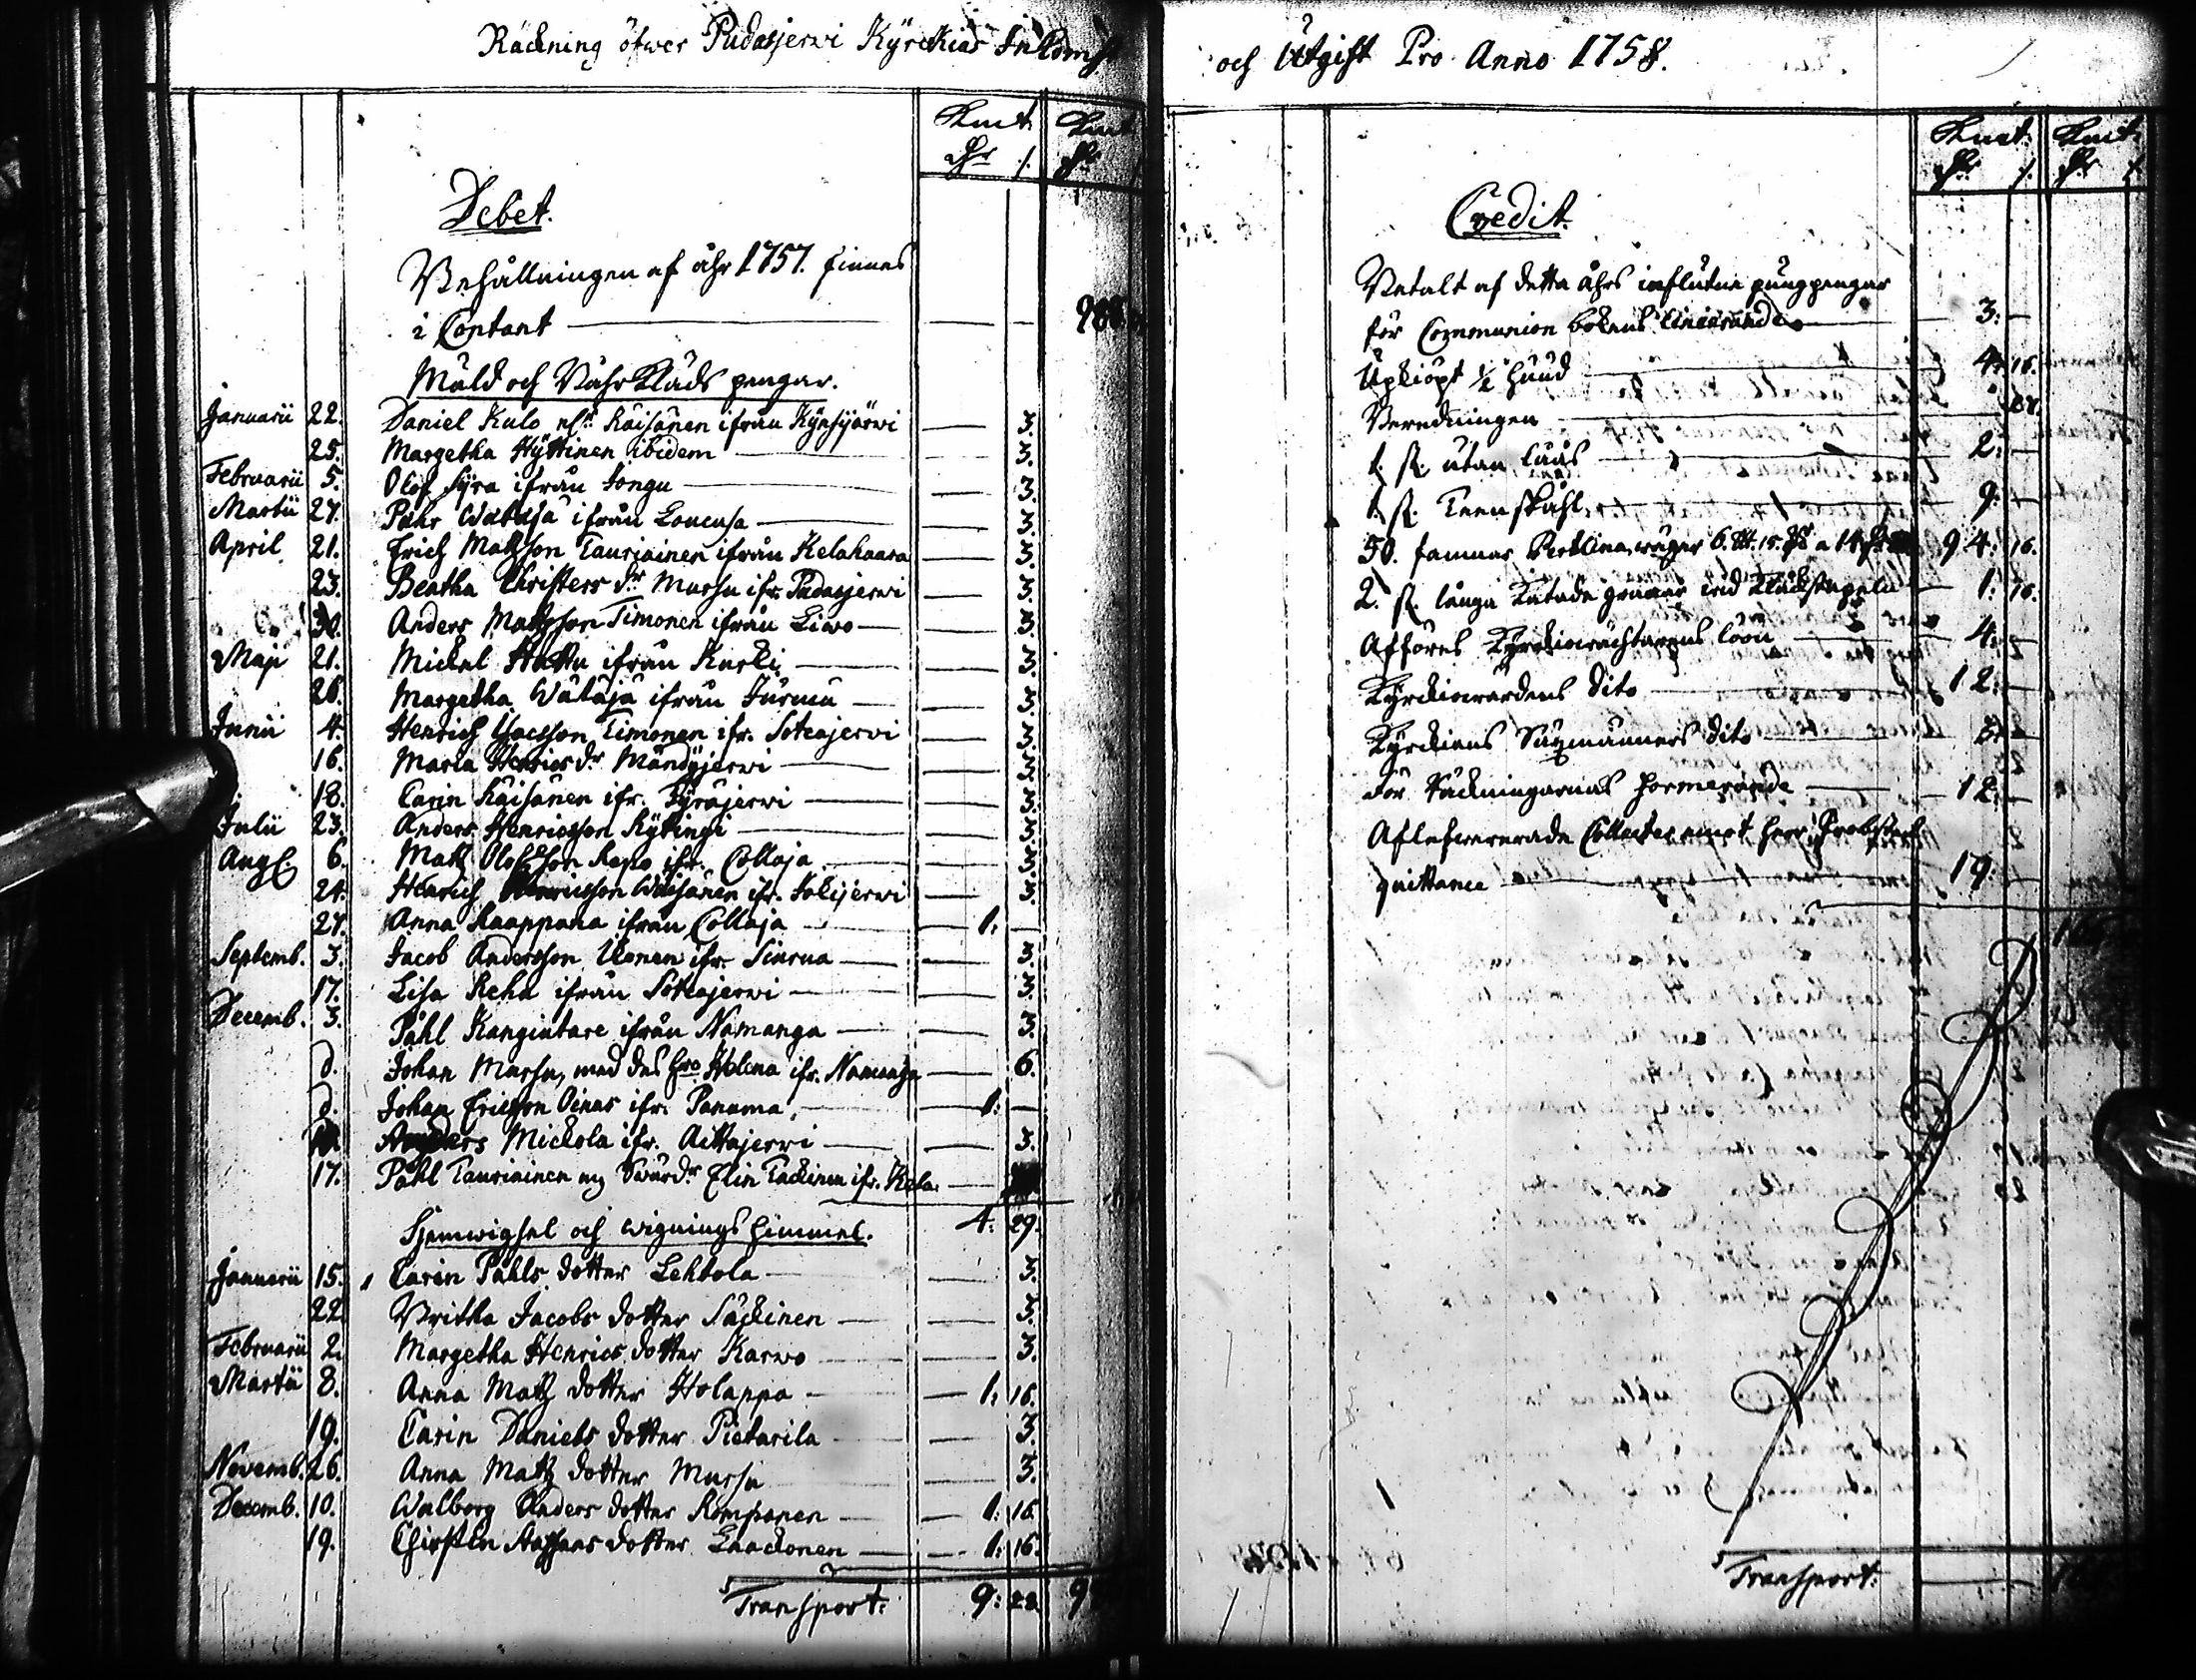 Räckning öfwer Pudasjerwi Kÿrckias Inkomst
Kmt. Kmt.
Debet.
Behållningen af åhr 1757. finnes
i Contant
Muld och Bahrkläds pengar.
Januarii 22. Daniel Kulo Räisänen ifrån Kÿnsijärwi 3.
25. Margetha Hÿttinen ibidem 3.
Februarii 5. Olof Sÿra ifrån Jongu 3.
Martii 27. Påhr ifrån 3.
April 21. Erich Matzson Tauriainen ifrån Kelahaara 3.
23. Beatha Christers dr. Mursu ifr. Pudasjerwi 3.
30. Anders Matzson Timonen ifrån Liwo 3.
Maji 21. Michel Hattu ifrån Kurki 3.
26. Margetha Wätäjä ifrån Jurmu 3.
Junii 4. Henrich Timonen ifr. Soteajerwi 3.
16. Maria Henrics dr. Mändÿjerwi 3.
18. Carin Räisänen ifr. Pÿräjerwi 3.
Julii 23. Anders Henricsson Rÿtingi 3.
Aug 6. Matz Olofsson Repo ifr. Collaja 3.
24. Henrich Henricsson Wäisänen ifr. Jokijerwi 3.
27. Anna Kaappana ifrån Collaja 1:
Septemb. 3. Jacob Andersson Ukonen ifr. Siurua 3.
17. Lisa Rehu ifrån Soteajerwi 3.
Decemb. 3. Påhl Kangiatare ifrån Namanga 3.
d. Johan Mursu, med des hro Helena ifr. Namanga 6.
d. Johan Ericsson Oinas ifr. Panuma 1:
Anders Mickola ifr. Aittajerwi 3.
17. Påhl Tauriainen Swärdr Elin Tackinen ifr. Kela
4: 29.
Hjonwigsel och wignings himmel.
Januarii 15. Carin Påhls dotter Lehtola 3.
22. Britha Jacobs dotter Säckinen 3.
Februarii 2. Margetha Henrics dotter Karwo 3.
Martii 8. Anna Matz dotter Holappa 1: 16.
19. Carin Daniels dotter Pietarila 3.
Novemb. 26. Anna Matz dotter Mursu 3.
Decemb. 10. Walborg Anders dotter Komponen 1: 16.
19. Chirstin dotter Laackonen 1: 16.
Transport: 9: 22.
och Utgift Pro Anno 1758.
Kmt. Kmt.
Credit.
Betalt af detta åhrs influtne pungpengar
för Communion bokens 3:
Upkiöpt ½ hund 4: 16.
Beredningen
1. st. utan luås 2:
1. st. Teenskåhl 9:
50. famnar wäger 6. 15. 94: 16.
2. st. långa wid Klåckstapeln 1: 16.
Afföres Kÿrckiowächtarens löön 4:
Kÿrckiowärdens dito 12:
Kÿrckians Säxmänners dito 3:
För Räckningarnas formerande 12:
Aflefwererade Collecter emot herr Probstens
quittance 19:
Transport: